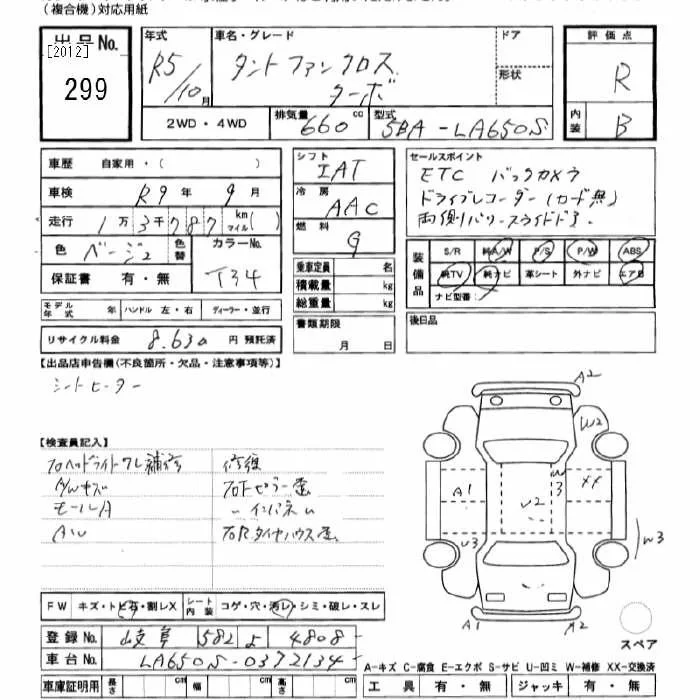 (複合機)対応用紙
出品No. [2012] 299
年式 R5/10月
車名・グレード タントファンクロス ターボ
ドア
形状
評価点 R
内装 B
2WD・4WD
排気量 660cc
型式 5BA-LA650S
車歴 自家用・( )
車検 R9年9月
走行 1万3千787km マイル( )
色 ベージュ 色替 カラーNo. T34
保証書 有・無
シフト IAT
冷房 AAC
燃料 G
乗車定員 名
積載量 kg
総重量 kg
セールスポイント
ETC バックカメラ
ドライブレコーダー(カード無)
両側パワースライドドア.
装備品 S/R 純A/W P/S P/W ABS
純TV 純ナビ 革シート 外ナビ エアB
ナビ型番
モデル年式 年 ハンドル 左・右 ディーラー・並行
リサイクル料金 8.630円 預託済
書類期限 月 日
後日品
【出品店申告欄(不良箇所・欠品・注意事項等)】
シートヒーター
【検査員記入】
フロヘッドライトワレ補修 修復
A/Wキズ 右Fピラー歪
モールA 〃インパネ〃
AW 右Rタイヤハウス歪
A2
W2
A1
W3
XX
W2
U3
W3
A1
A2
スペア
FW キズ・トビ石・割レX シート内装 コゲ・穴・汚レ・シミ・破レ・スレ
登録No. 岐阜 582 よ 4808
車台No. LA650S-0372134
A-キズ C-腐食 E-エクボ S-サビ U-凹ミ W-補修 XX-交換済
車庫証明用 長さ cm 幅 cm 高さ cm
工具 有・無 ジャッキ 有・無